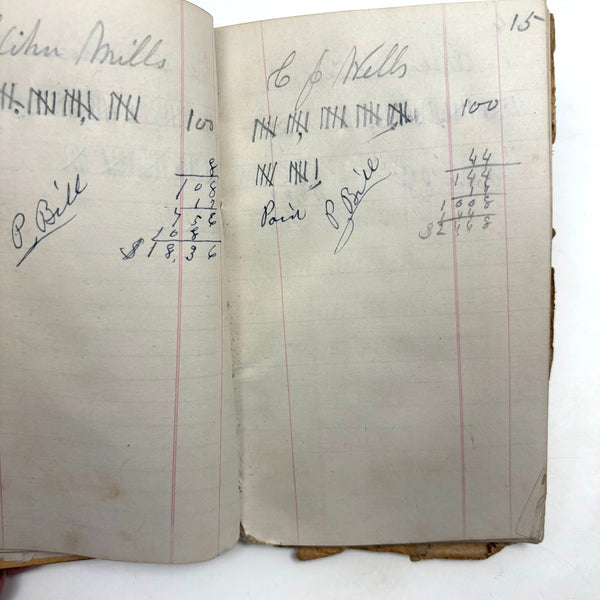 Mills
100
8
108
17
756
108
$18.36
P Bill
15
C J Wells
100
44
144
17
1008
144
$24.48
Paid P Bill